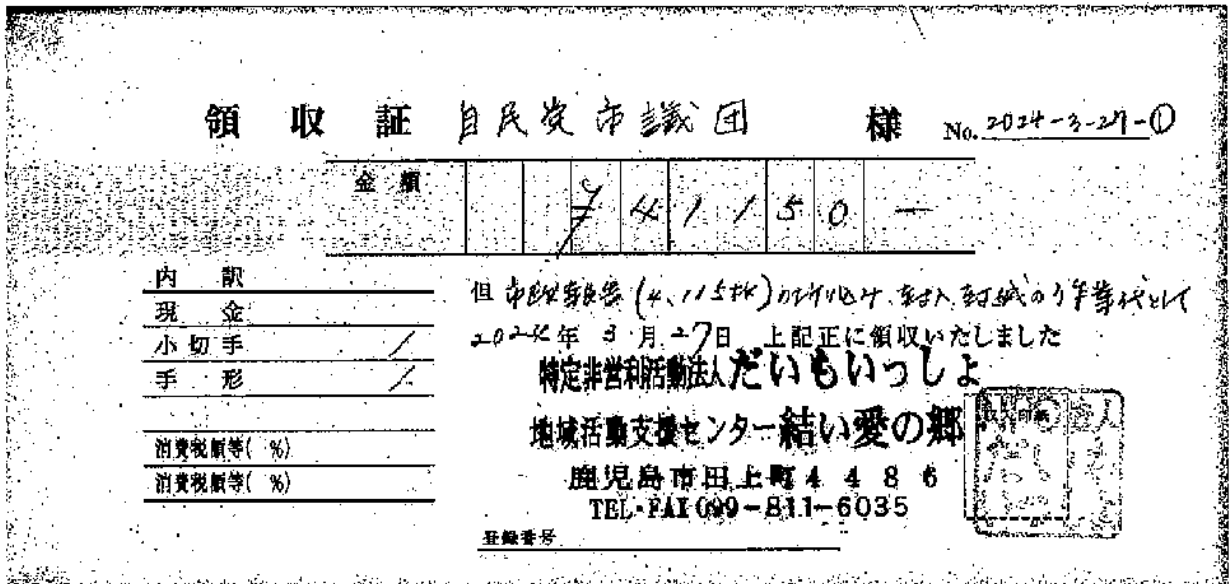 領収証 自民党市議団 様 No. 2024-3-27-①
金額 ¥41150-
内訳
現金
小切手 /
手形 /
消費税額等( %)
消費税額等( %)
但 市政報告(4,115枚)の折り込み、封入、封緘の作業代として
2024年 3月27日 上記正に領収いたしました
特定非営利活動法人だいもいっしょ
地域活動支援センター結い愛の郷
鹿児島市田上町4486
TEL・FAX 099-811-6035
収入印紙
登録番号